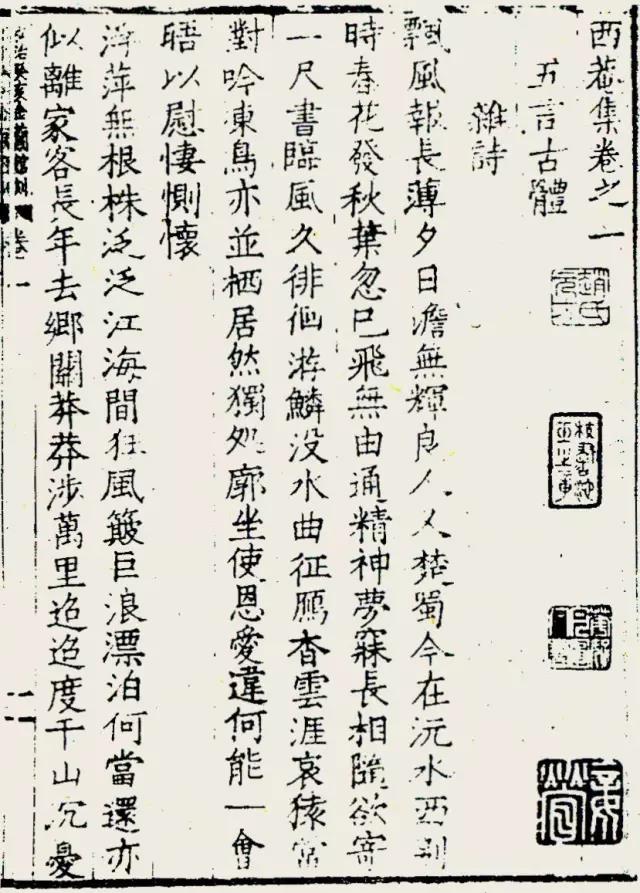 西菴集卷之一
五言古體
雜詩
飄風報長薄夕日澹無輝良人入楚蜀今在沅水西別
時春花發秋葉忽已飛無由通精神夢寐長相隨欲寄
一尺書臨風久徘徊游鱗没水曲征鴈杳雲涯哀猿常
對吟凍鳥亦並栖居然獨処廓坐使恩愛違何能一會
晤以慰悽惻懷
浮萍無根株泛泛江海間狂風簸巨浪漂泊何當還亦
似離家客長年去鄉關莽莽涉萬里迢迢度千山沉憂
癸亥金蘭館刻
卷一